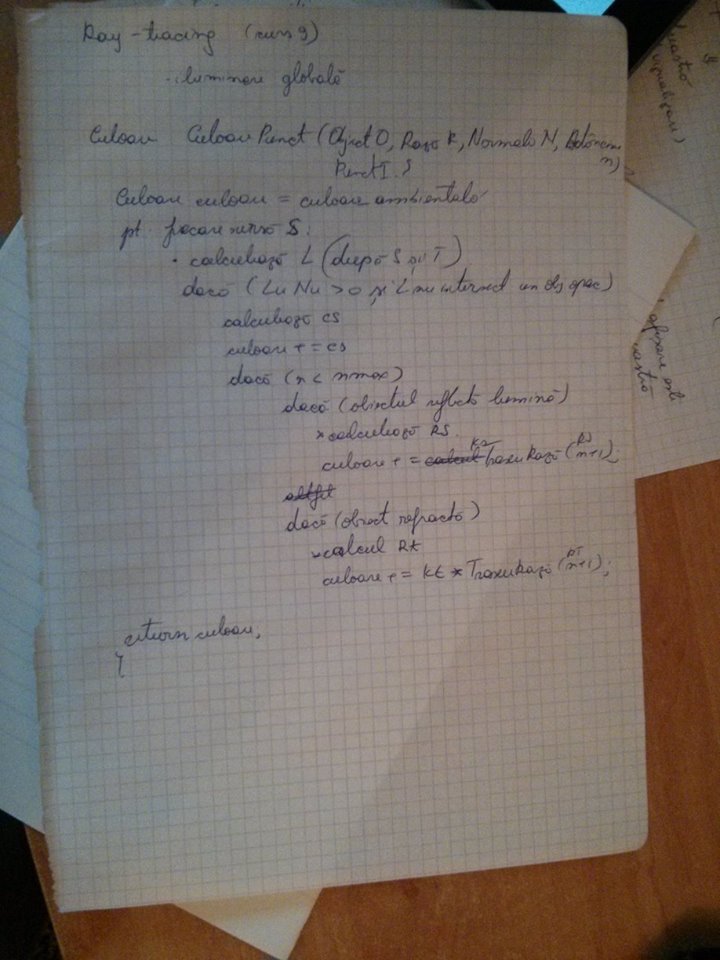 Ray-tracing (curs 9)
· iluminare globală
Culoare CuloarePunct (Object O, Rază R, Normală N,
n)
Punct I) {
Culoare culoare = culoare ambientală
pt. fiecare sursă S:
· calculează L (după S și I)
dacă (Lu Nu > 0 și L nu intersect un obj opac)
calculează cs
culoare + = cs
dacă (n < nmax)
dacă (obiectul reflectă lumină)
* calculează RS.
culoare + = TraseuRază (RS n+1);
altfel
dacă (obiect refractă)
* calcul Rt
culoare + = Kt * TraseuRază (RT n+1);
return culoare;
}
vizualizare)
afișare